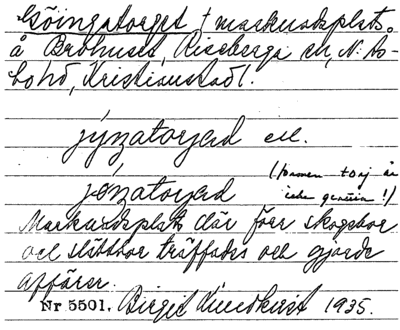 Göingatorget † marknadsplats
å Brohuset, Riseberga sn, N. Ås-
bohd, Kristianstadl.
jynatorjed el.
jönatorjed (formen torj är
icke genuin!)
Marknadsplats där förr skogsbor
och slättbor träffades och gjorde
affärer.
Nr 5501. Birgit Lundkvist 1935.